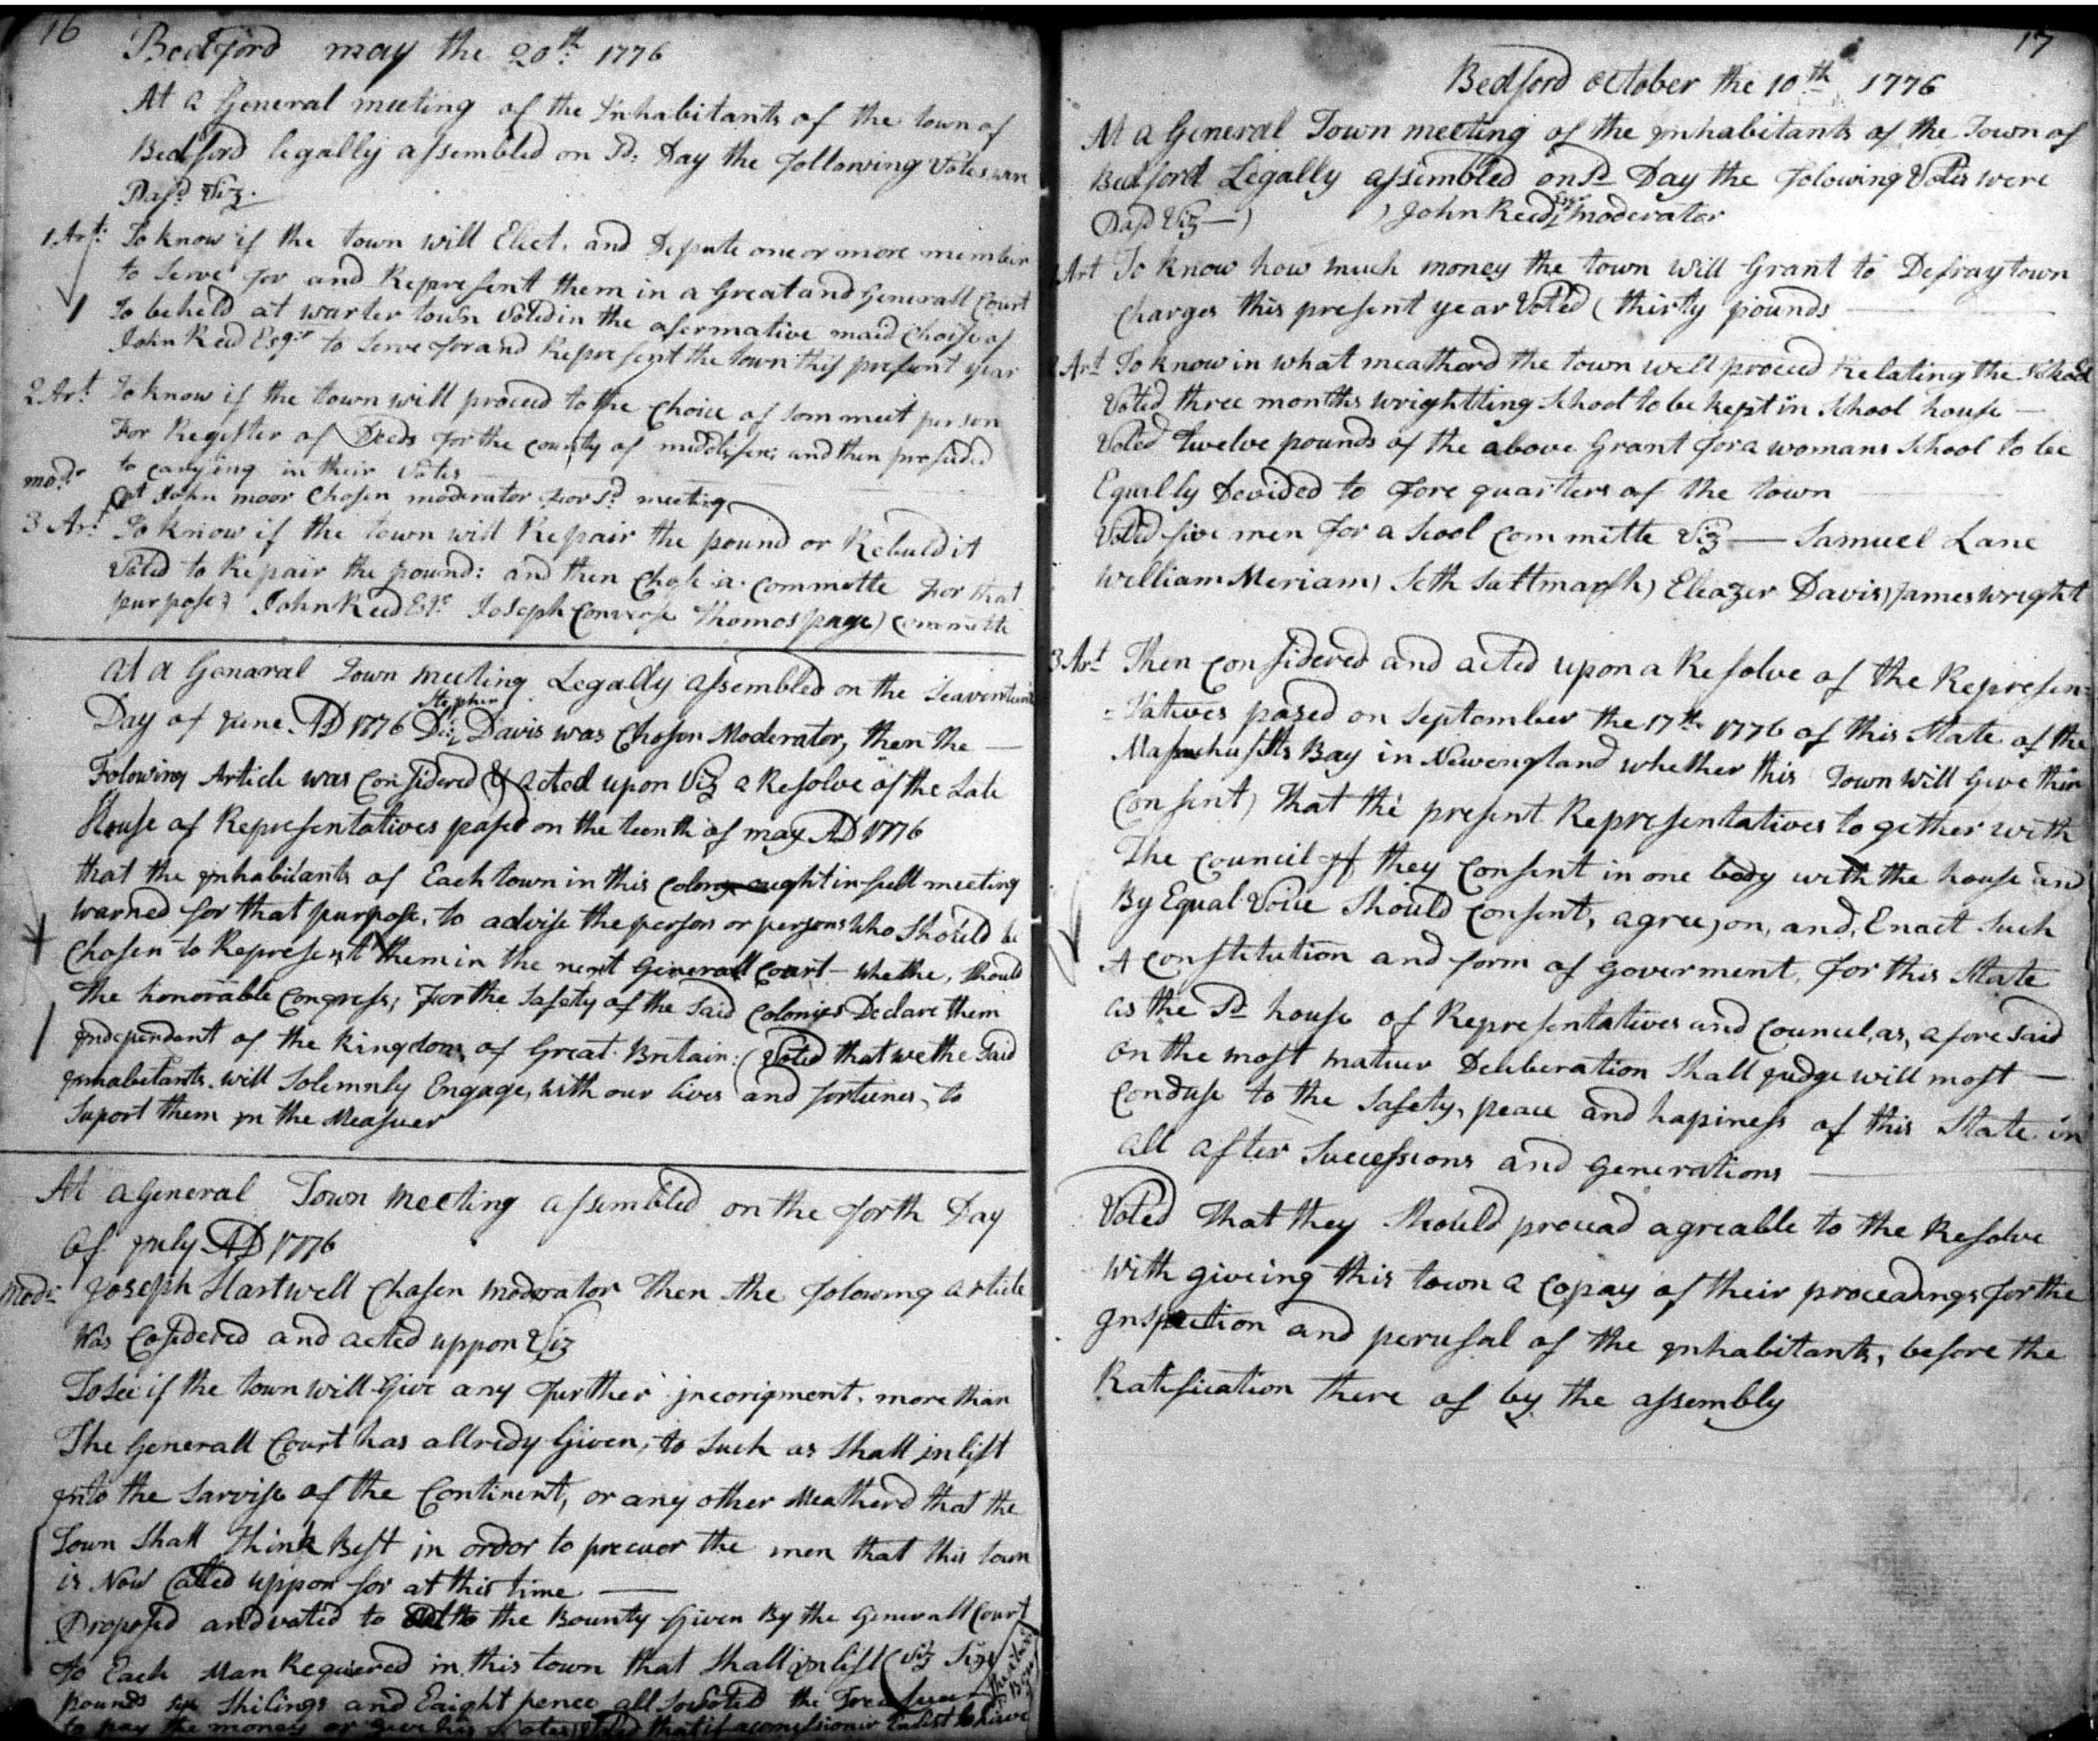 16
Bedford may the 20th 1776
At a General meeting of the Inhabitants of the town of
Bedford legally assembled on Sd: Day the following Votes ware
Pasd Viz.
1 Art: To know if the town will Elect. and Depute one or more member
to serve for and Represent them in a Great and Generall Court
To be held at warter town Voted in the afermative maid Choise of
John Reed Esqr to serve for and Represent the town this present year
2 Art To know if the town will proceed to the Choice of som meet person
For Regester of Deeds for the county of middlesex; and then proseded
to carying in their votes
modr Cpt John moor Chosen moderator for Sd meeting
3 Art To know if the town will Repair the pound or Rebuld it
Voted to Repair the pound: and then Chose a committe for that
purpose John Reed Esqr Joseph Converse Thomas page) committe
At a Genaral Town meeting Legally assembled on the Seaventeent
Day of June AD 1776 Dn Stephen Davis was Chosen Moderator, then the —
Folowing Article was Considered & acted upon Viz a Resolve of the Late
House of Representatives pased on the teenth of may AD 1776
that the inhabitants of Each town in this colony ought in full meeting
warned for that purpose, to advise the person or persons who Should be
Chosen to Represent them in the next Generall Court — whethe, should
the honorable Congress; For the safety of the said Colonyes Declare them
independant of the Kingdom of Great Britain: (Voted that we the Said
inhabetants will solemnly Engage, with our lives and fortunes, to
Suport them in the Measuer
At a General Town meeting assembled on the forth Day
of July AD 1776
Modr Joseph Hartwell Chosen moderator Then the folowing article
Was Cosidered and acted uppon Viz
To see if the town will Give any further incorigment. more than
The Generall Court has allredy Given, to such as shall inlist
into the sarvise of the Continent, or any other Meatherd that the
Town shall think Best in order to precuor the men that this town
is Now Called uppon for at this time —
Proposed and voted to the Bounty Given By the Generall Court
To Each Man Requiered in this town that shall inlist (Viz Six
pounds six shilings and Eaight pence all so Voted the Treasuer
to pay the money or give his Votes
17
Bedford october the 10th 1776
At a General Town meeting of the inhabitants of the Town of
Bedford Legally assembled on Sd Day the folowing Votes were
Pasd Viz —) ) John Reed Esqr moderator
Art To know how much money the town will Grant to Defray town
Charges this present year Voted (thirty pounds
Art To know in what meathord the town will proceed Relating the School
Voted three months wrightting school to be kept in school house —
Voted twelve pounds of the above Grant for a womans school to be
Equilly Devided to fore quarters of the town
Voted five men for a scool committe Viz — Samuel Lane
William Meriam) Seth Saltmarsh) Eleazer Davis) James wright
3 Art Then considered and acted upon a Resolve of the Represen-
=tatives pased on September the 17th 1776 of this State of the
Massachusetts Bay in Newengland whether this Town will Give their
Consent) That the present Representatives together with
The Council if they Consent in one body with the house and
By Equal Voice Should consent, agree, on, and, Enact Such
A Constitution and form of goverment, for this State
as the Sd house of Representatives and Councel, as, afore said
on the most matuer Deliberation shall judge will most —
Conduse to the Safety, peace and hapiness of this State in
all after Successions and generations
Voted That they Should procead agreable to the Resolve
with giveing this town a copay of their proceadings for the
inspection and perusal of the inhabitants, before the
Ratification there of by the assembly